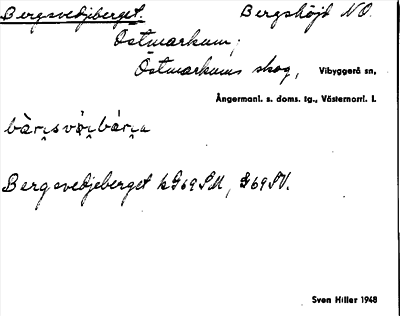 Bergsvedjeberget. Bergshöjd NO.
Östmarkum;
Östmarkums skog, Vibyggerå sn,
Ångermanl. s. doms. tg., Västernorrl. l.
Bergsvedjeberget kG69SM, G69SV.
Sven Hiller 1948